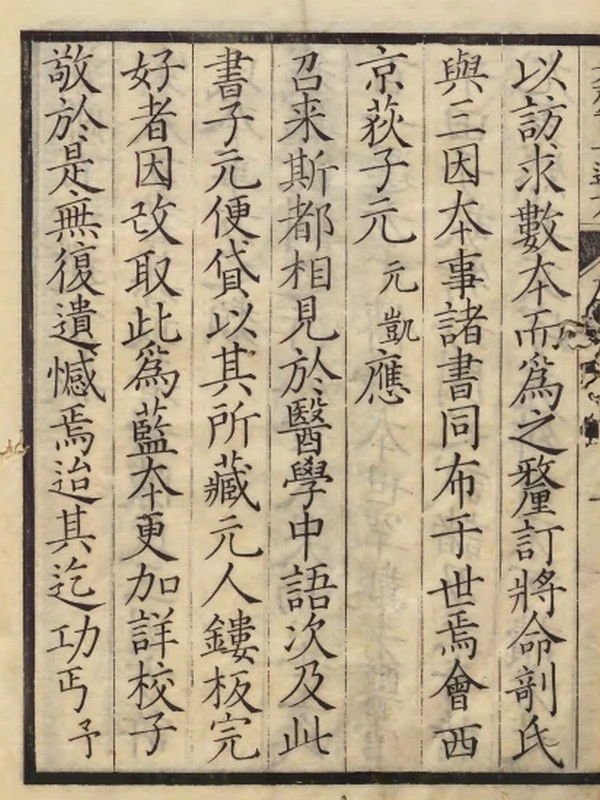 以訪求數夲而爲之釐訂將命剞氏
與三因夲事諸書同布于世焉會西
京荻子元元凱應
召来斯都相見於醫學中語次及此
書子元便貸以其所藏元人鏤板完
好者因改取此爲藍夲更加詳校子
敬於是無復遺憾焉迨其迄功丐予